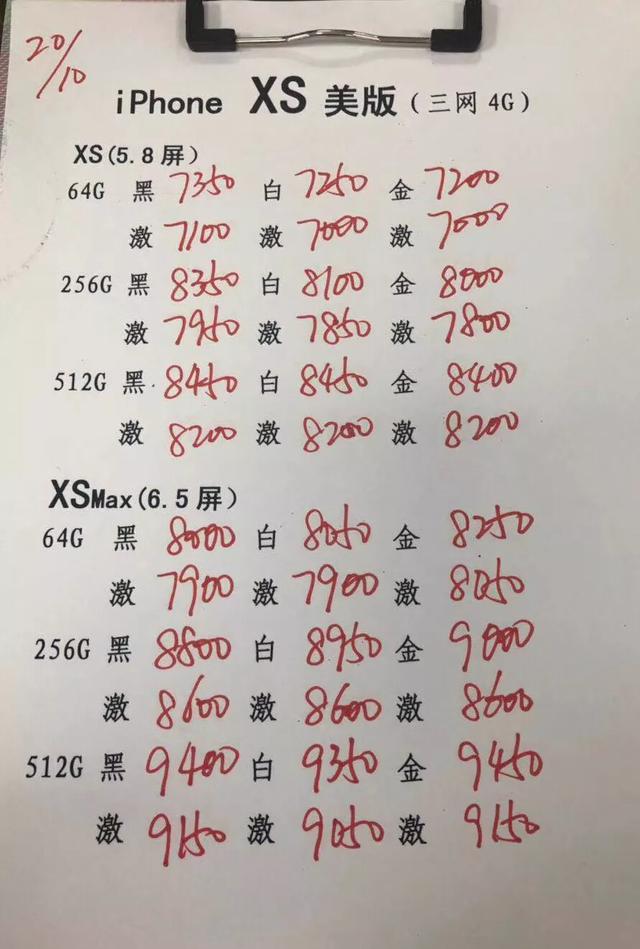 20/10
iPhone XS 美版(三网4G)
XS(5.8屏)
64G 黑 7350 白 7250 金 7200
激 7100 激 7000 激 7000
256G 黑 8350 白 8100 金 8000
激 7950 激 7850 激 7800
512G 黑 8450 白 8450 金 8400
激 8200 激 8200 激 8200
XSMax(6.5屏)
64G 黑 8000 白 8050 金 8250
激 7900 激 7900 激 8050
256G 黑 8800 白 8950 金 9000
激 8600 激 8600 激 8600
512G 黑 9400 白 9350 金 9450
激 9150 激 9050 激 9150